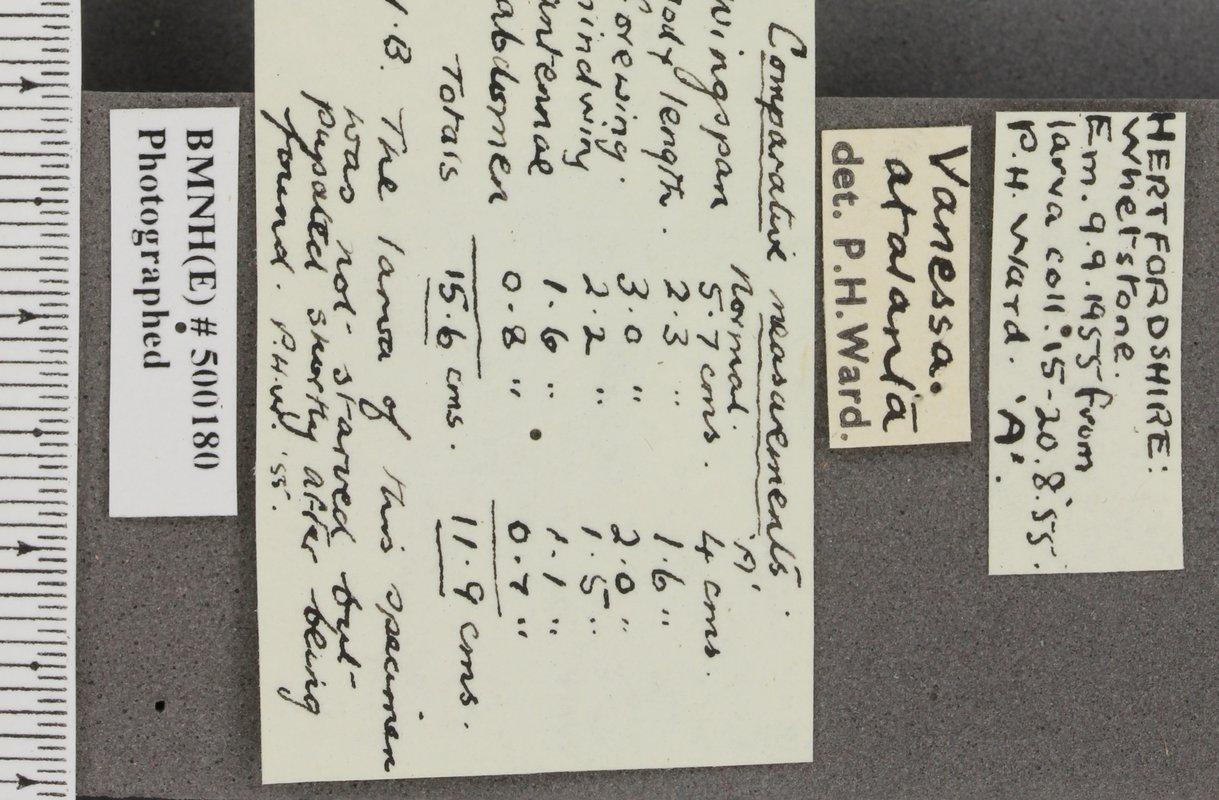 HERTFORDSHIRE:
Whetstone.
Em. 9.9.1955 from
larva coll. 15-20.8.55.
P.H. Ward. 'A'.
Vanessa.
atalanta
det. P.H. Ward.
Comparative measurements.
Normal. 'A'
wingspan 5.7 cms. 4 cms.
body length. 2.3 " 1.6 "
Forewing. 3.0 " 2.0 "
hindwing 2.2 " 1.5 "
antennae 1.6 " 1.1 "
abdomen 0.8 " 0.7 "
Totals 15.6 cms. 11.9 cms.
N.B. The larva of this specimen
was not starved but
pupated shortly after being
found. P.H.W. '55.
BMNH(E) # 500180
Photographed